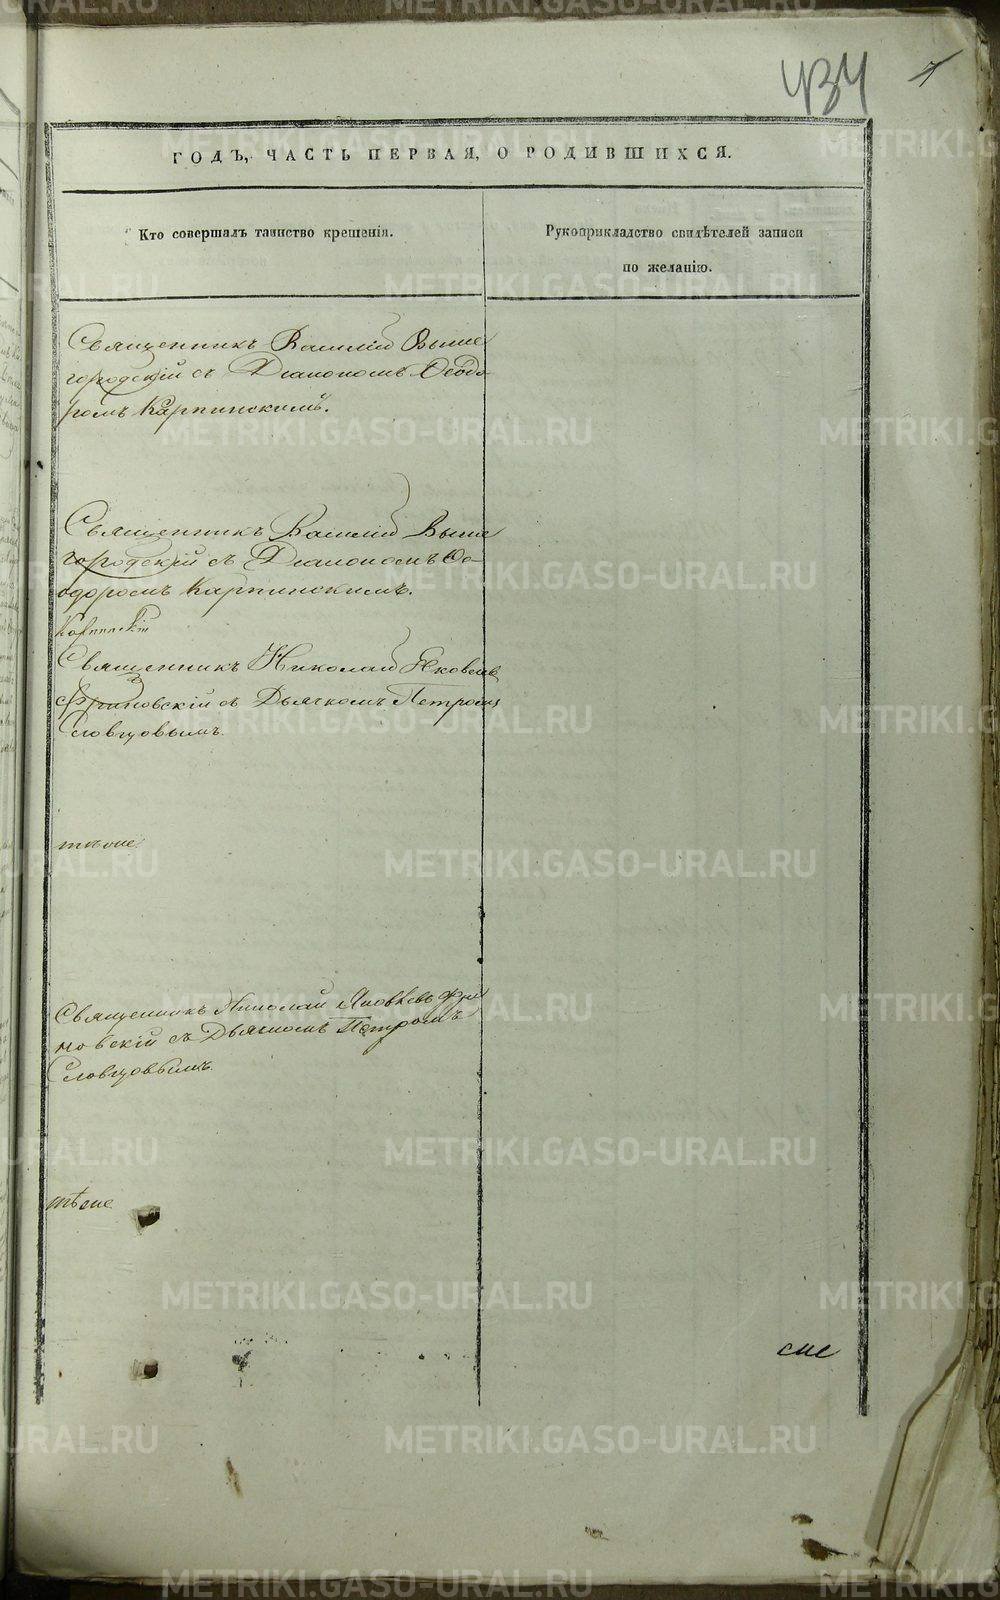 434 7
ГОДЪ, ЧАСТЬ ПЕРВАЯ, О РОДИВШИХСЯ.
Кто совершалъ таинство крещенія.
Рукоприкладство свидѣтелей записи
по желанію.
Священникъ Василій Выше
городскій съ Діакономъ Ѳеодо-
ромъ Карпинскимъ.
Священникъ Василій Выше
городскій съ Діакономъ Ѳе-
одоромъ Карпинскимъ.
Священникъ Николай Яковлевъ
съ Дьячкомъ Петромъ
Словцовымъ.
тѣ же
Священникъ Николай Яковлевъ
новскій съ Дьячкомъ Петромъ
Словцовымъ.
тѣ же
METRIKI.GASO-URAL.RU